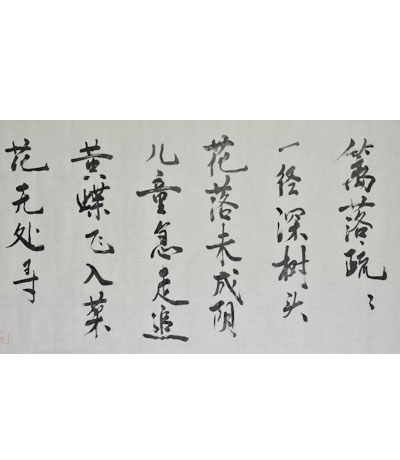 篱落疏〻
一径深树头
花落未成阴
儿童急走追
黄蝶飞入菜
花无处寻